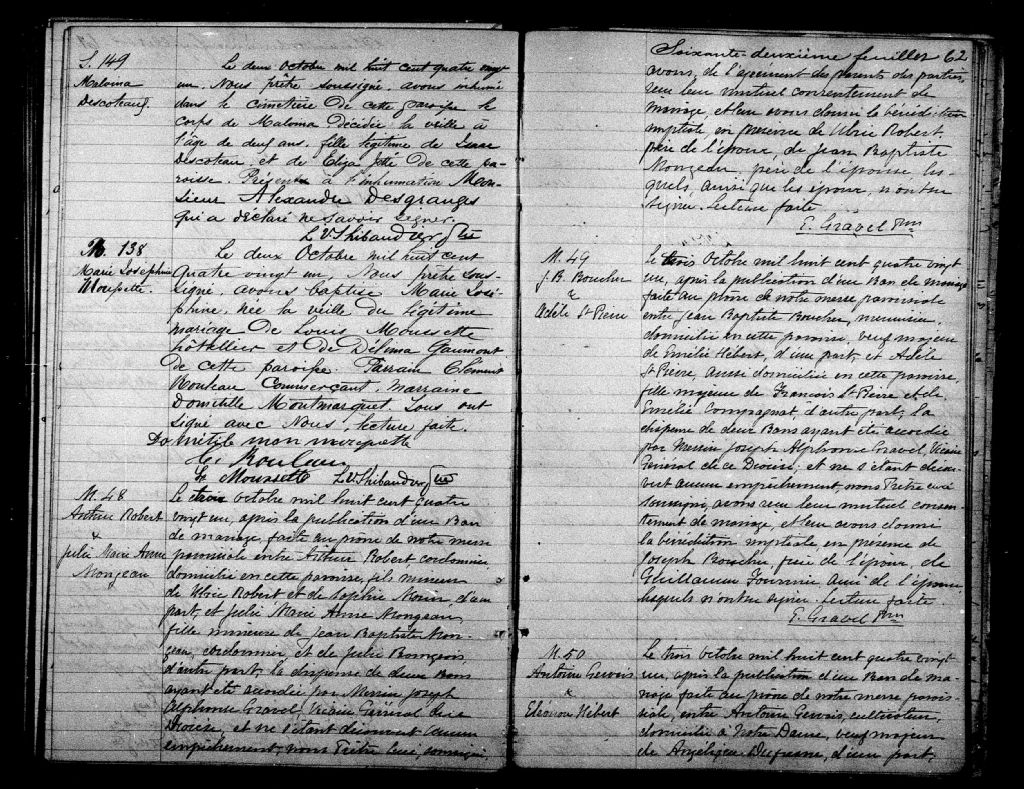 S. 149
Malvina
Descoteaux
Le deux Octobre mil huit cent quatre vingt
un. Nous prêtre soussigné, avons inhumé
dans le cimetière de cette paroisse le
corps de Malvina décédée la veille à
l'âge de deux ans, fille légitime de Isaac
Descoteau et de Eliza Jette de cette pa-
roisse. Présent à l'inhumation Mon-
sieur Alexandre Desgranges
qui a déclaré ne savoir signer.
L V Thibaudier Ptre
B. 138
Marie Joséphine
Moussette.
Le deux Octobre mil huit cent
quatre vingt un, Nous prêtre sous-
signé, avons baptisé Marie José-
phine, née la veille du légitime
mariage de Louis Moussette
hôtellier et de Délima Gaumont
de cette paroisse. Parrain Clément
Rouleau Commerçant, marraine
Domitille Montmarquet. Tous ont
signé avec Nous, lecture faite.
Domitile mon marquette
C. Rouleau
L. Moussette L V Thibaudier Ptre
M. 48
Arthur Robert
&
Julie Marie Anne
Mongeau
Le trois octobre mil huit cent quatre
vingt un, après la publication d'un Ban
de mariage, faite au prône de notre messe
paroissiale entre Arthur Robert, cordonnier
domicilié en cette paroisse, fils mineur
de Ulric Robert et de Sophie Morin, d'une
part, et Julie Marie Anne Mongeau
fille mineure de Jean Baptiste Mon-
geau, cordonnier, et de Julie Bourgeois,
d'autre part, la dispense de deux Bans
ayant été accordée par Messire Joseph
Alphonse Gravel, Vicaire Général de ce
Diocèse, et ne s'étant découvert aucun
empêchement, nous Prêtre Curé, soussigné
Soixante-deuxième feuillet 62
avons, de l'agrément des parents des parties,
reçu leur mutuel consentement de
mariage, et leur avons donné la bénédiction
nuptiale en présence de Ulric Robert,
père de l'époux, de Jean Baptiste
Mongeau, père de l'épouse, les-
quels, ainsi que les époux, n'ont su
signer. Lecture faite
E. Gravel Ptre
M. 49
J. B. Boucher
&
Adèle St Pierre
Le trois Octobre mil huit cent quatre vingt
un, après la publication d'un Ban de mariage
faite au prône de notre messe paroissiale
entre Jean Baptiste Boucher, menuisier,
domicilié en cette paroisse, veuf majeur
de Emilie Hébert, d'une part, et Adèle
St Pierre, aussi domiciliée en cette paroisse,
fille majeure de François St Pierre et de
Emelie Compagnat, d'autre part, la
dispense de deux Bans ayant été accordée
par Messire Joseph Alphonse Gravel, Vicaire
Général de ce Diocèse, et ne s'étant décou-
vert aucun empêchement, nous Prêtre curé
soussigné, avons reçu leur mutuel consen-
tement de mariage, et leur avons donné
la bénédiction nuptiale en présence de
Joseph Boucher, frère de l'époux, de
Guillaume Fournier ami de l'épouse
lesquels n'ont su signer. Lecture faite
E. Gravel Ptre
M. 50
Antoine Gervais
&
Eléonore Hébert
Le trois octobre mil huit cent quatre vingt
un, après la publication d'un Ban de ma-
riage faite au prône de notre messe parois-
siale, entre Antoine Gervais, cultivateur,
domicilié à Notre Dame, veuf majeur
de Angélique Dufresne, d'une part,